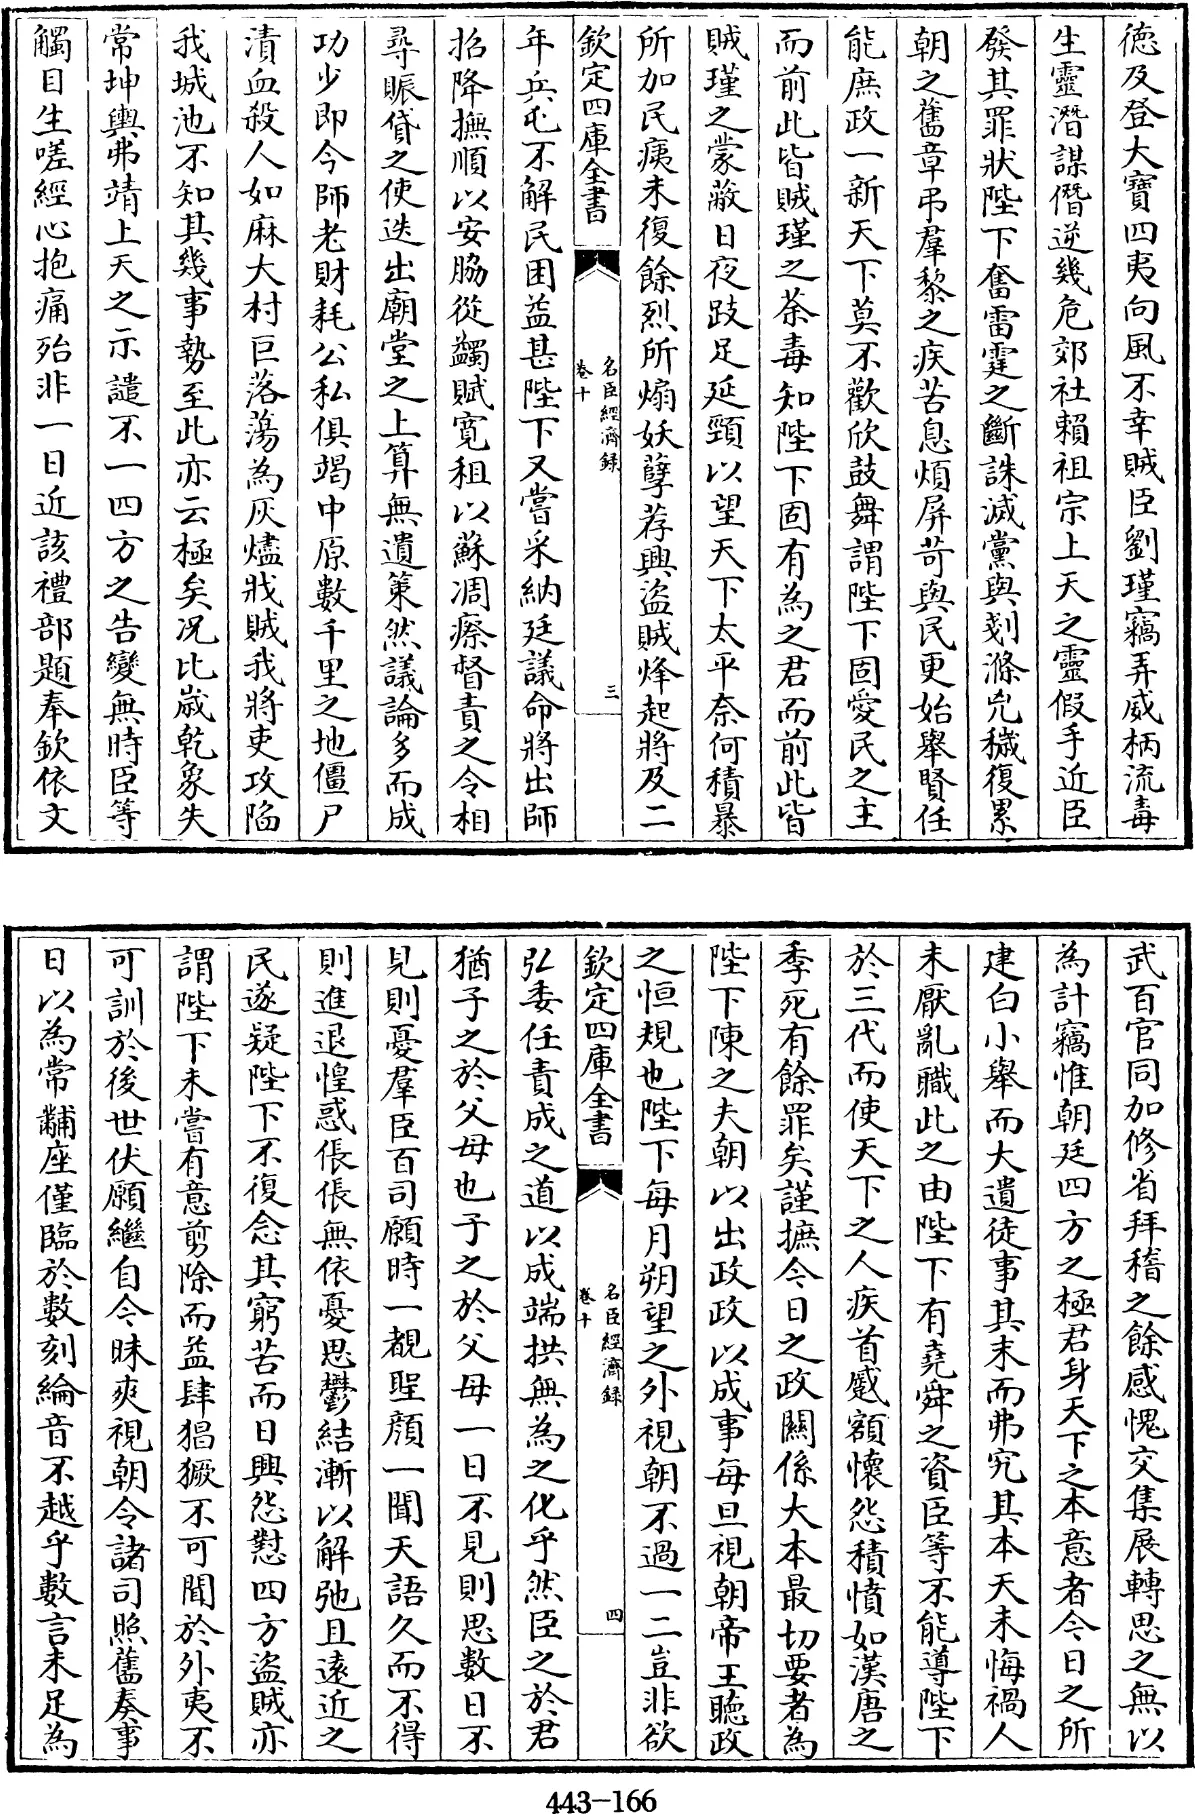 徳及登大寶四夷向風不幸賊臣劉瑾竊弄威柄流毒
生靈潛謀僭逆幾危郊社賴祖宗上天之靈假手近臣
發其罪狀陛下奮雷霆之斷誅滅黨與剗滌兇穢復累
朝之舊章弔羣黎之疾苦息煩屏苛與民更始舉賢任
能庶政一新天下莫不歡欣鼓舞謂陛下固愛民之主
而前此皆賊瑾之荼毒知陛下固有為之君而前此皆
賊瑾之蒙蔽日夜跂足延頸以望天下太平奈何積暴
所加民痍未復餘烈所煽妖孽荐興盜賊烽起將及二
欽定四庫全書
名臣經濟録
卷十
三
年兵屯不解民困益甚陛下又嘗采納廷議命將出師
招降撫順以安脇從蠲賦寬租以蘇凋瘵督責之令相
尋賑貸之使迭出廟堂之上算無遺策然議論多而成
功少即今師老財耗公私俱竭中原數千里之地僵尸
漬血殺人如麻大村巨落蕩為灰燼戕賊我將吏攻陷
我城池不知其幾事勢至此亦云極矣况比嵗乾象失
常坤輿弗靖上天之示譴不一四方之告變無時臣等
觸目生嗟經心抱痛殆非一日近該禮部題奉欽依文
武百官同加修省拜稽之餘感愧交集展轉思之無以
為計竊惟朝廷四方之極君身天下之本意者今日之所
建白小舉而大遺徒事其末而弗究其本天未悔禍人
未厭亂職此之由陛下有堯舜之資臣等不能導陛下
於三代而使天下之人疾首蹙額懷怨積憤如漢唐之
季死有餘罪矣謹摭今日之政關係大本最切要者為
陛下陳之夫朝以出政政以成事每旦視朝帝王聽政
之恒規也陛下每月朔望之外視朝不過一二豈非欲
欽定四庫全書
名臣經濟録
卷十
四
弘委任責成之道以成端拱無為之化乎然臣之於君
猶子之於父母也子之於父母一日不見則思數日不
見則憂羣臣百司願時一覩聖顔一聞天語久而不得
則進退惶惑倀倀無依憂思鬱結漸以解弛且遠近之
民遂疑陛下不復念其窮苦而日興怨懟四方盜賊亦
謂陛下未嘗有意剪除而益肆猖獗不可聞於外夷不
可訓於後世伏願繼自今昧爽視朝令諸司照舊奏事
日以為常黼座僅臨於數刻綸音不越乎數言未足為
443-166